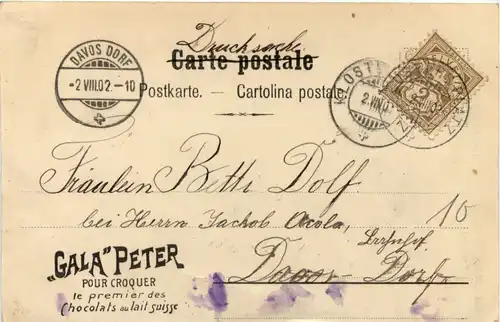 Drucksache
Carte postale
Postkarte. — Cartolina postale
DAVOS DORF
-2.VIII.02.-10
KLOSTERS
2.VIII.02
2
Fräulein Betti Dolf.
bei Herrn Jachob Accola,
Bahnhof.
10
Davos-Dorf
„GALA" PETER
POUR CROQUER
le premier des
Chocolats au lait suisse